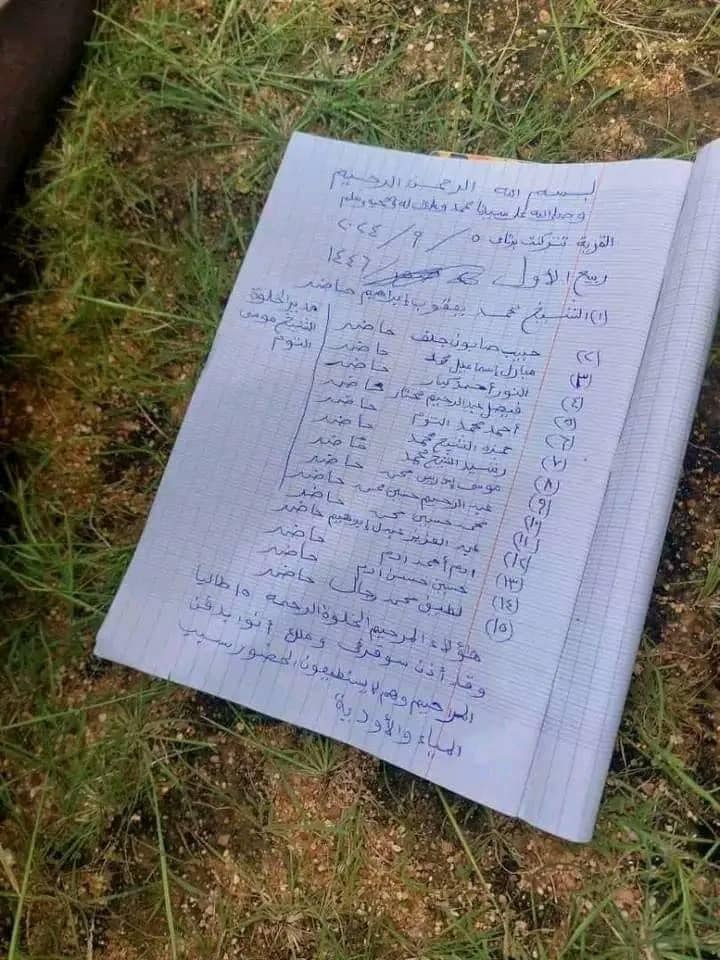 بسم الله الرحمن الرحيم
وصلى الله على سيدنا محمد وعلى آله وصحبه وسلم
القرية تنركنت بتاريخ ٥ / ٩ / ٢٠٢٤
ربيع الأول ١٤٤٦
(١) الشيخ محمد يعقوب إبراهيم حاضر
(٢) حبيب صابون خلف حاضر
(٣) مبارك إسماعيل محمد حاضر
(٤) النور أحمد كبار حاضر
(٥) فيصل عبدالرحيم مختار حاضر
(٦) أحمد محمد النوم حاضر
(٧) حمزة الشيخ محمد حاضر
(٨) رشيد الشيخ محمد حاضر
(٩) موسى إدريس محمد حاضر
(١٠) عبد الرحيم حسن محمد حاضر
(١١) محمد حسين محمد حاضر
(١٢) عبد العزيز عبدل إبراهيم حاضر
(١٣) ادم أحمد ادم حاضر
(١٤) حسين حسن ادم حاضر
(١٥) لطيف محمد رجال حاضر
مدير الخلوة
الشيخ موسى
النوم
هؤلاء المرحيم الخلوة الرحمة ١٥ طالبا
وقد أذن سوفرف وملع أتوا بدفن
المرحيم وهم لا يستطيعون الحضور سبب
المياء والأودية